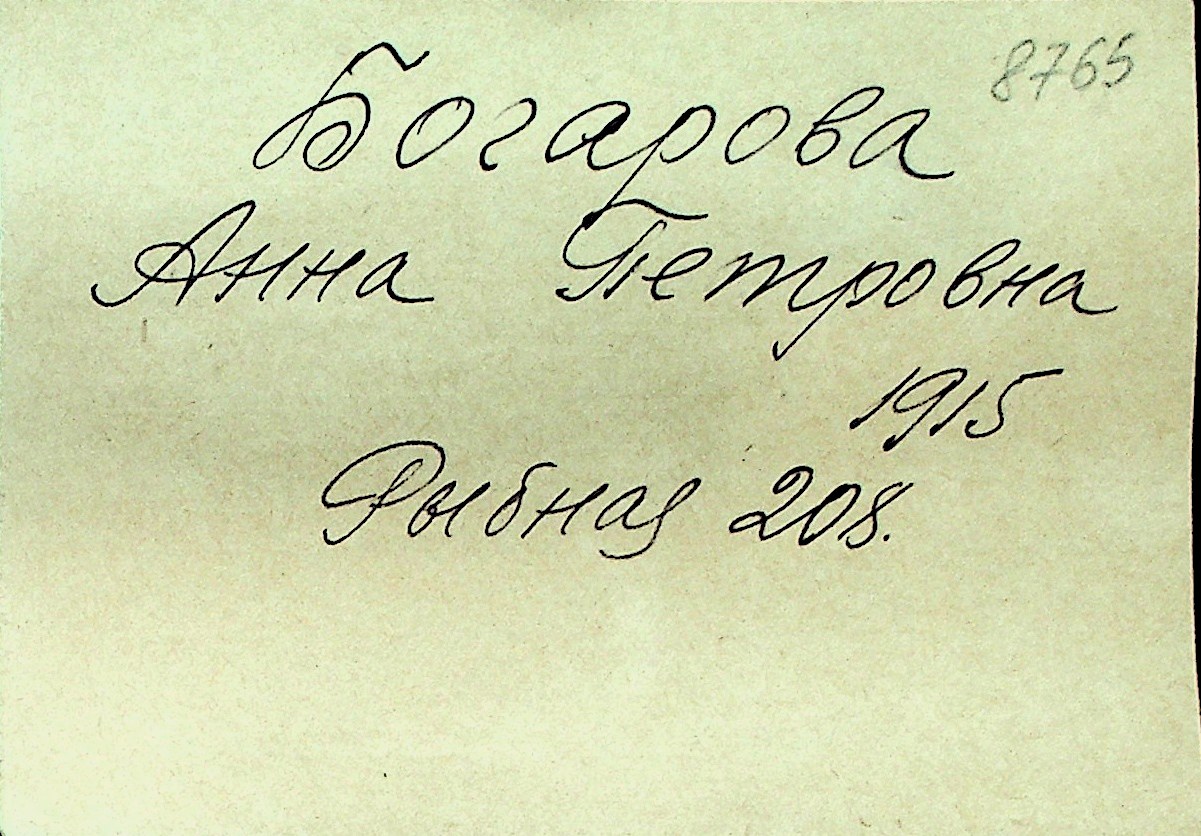 8765
Богарова
Анна Петровна
1915
Рыбная 208.